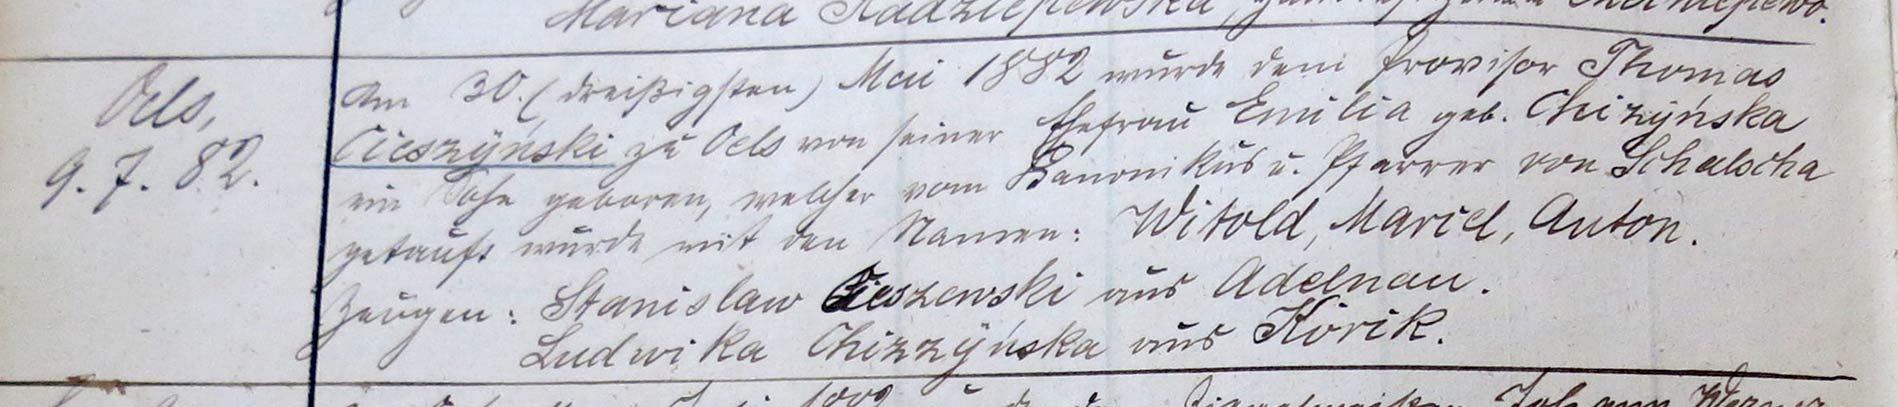 Mariana Radziejewska,
Oels,
9. 7. 82.
Am 30. (dreißigsten) Mai 1882 wurde dem Provisor Thomas
Cieszyński zu Oels von seiner Ehefrau Emilia geb. Chizyńska
ein Sohn geboren, welcher vom Kanonikus u. Pfarrer von Schalscha
getauft wurde mit den Namen: Witold, Maricl, Anton.
Zeugen: Stanislaw Cieszewski aus Adelnau.
Ludwika Chizzyńska aus Korik.